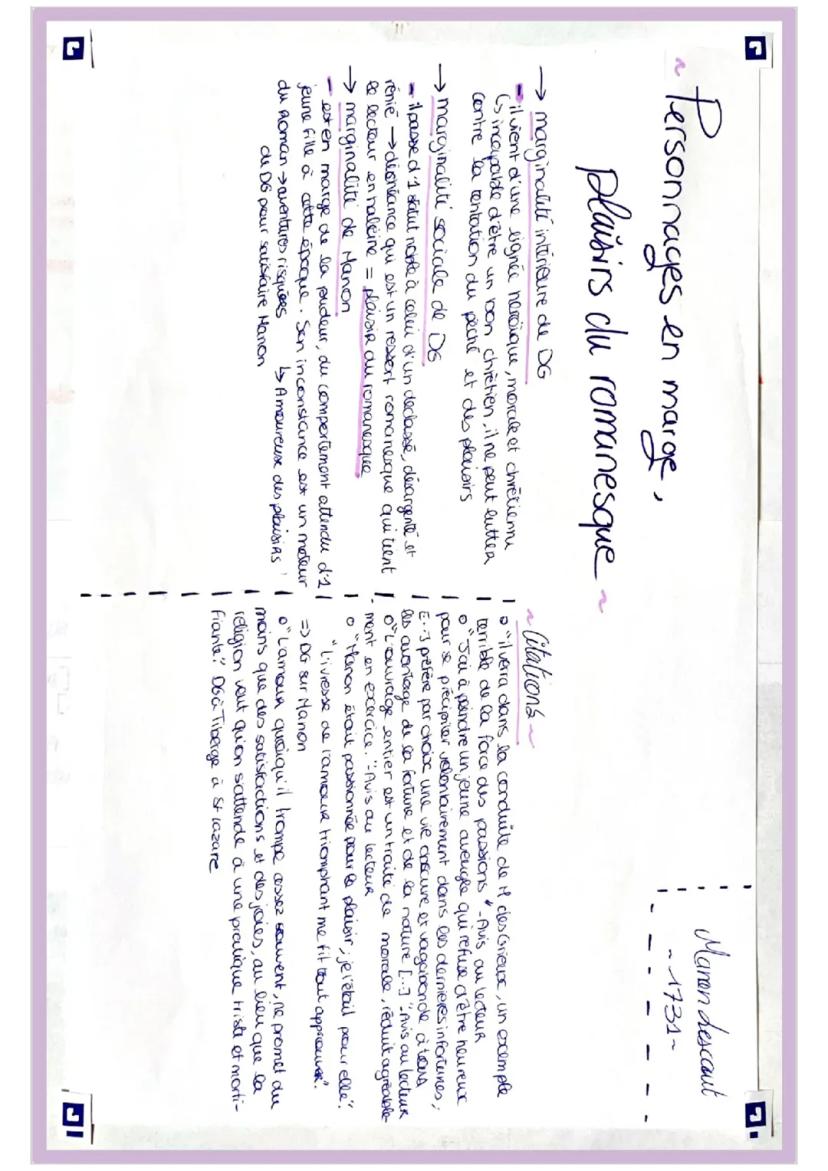 ~ Personnages en marge,
plaisirs du romanesque ~
Manon Lescaut
~ 1731 ~
→ marginalité intérieure de DG
- il vient d'une lignée héroïque, morale et chrétienne
↳ incapable d'être un bon chrétien, il ne peut lutter
contre la tentation du péché et des plaisirs
→ marginalité sociale de DG
- il passe d'1 statut noble à celui d'un déclassé, désargenté et
renié → déchéance qui est un ressort romanesque qui tient
le lecteur en haleine = plaisir du romanesque
→ marginalité de Manon
- est en marge de la pudeur, du comportement attendu d'1
jeune fille à cette époque. Son inconstance est un moteur
du Roman → aventures risquées ↳ Amoureuse des plaisirs
de DG pour satisfaire Manon
~ Citations ~
o "il verra dans la conduite de M des Grieux, un exemple
terrible de la force des passions" - Avis au lecteur
o "J'ai à peindre un jeune aveugle qui refuse d'être heureux
pour se précipiter volontairement dans les dernières infortunes,
[...] préfère par choix une vie obscure et vagabonde à tous
les avantage de la fortune et de la nature [...]". Avis au lecteur
o "L'ouvrage entier est un traité de morale, réduit agréable-
ment en exercice." - Avis au lecteur
o "Manon était passionnée pour le plaisir, je l'étais pour elle".
"L'ivresse de l'amour triomphant me fit tout approuver".
=> DG sur Manon
o "L'amour quoiqu'il trompe assez souvent, ne promet du
moins que des satisfactions et des joies, au lieu que la
religion veut qu'on s'attende à une pratique triste et morti-
fiante." DG à Tiberge à St Lazare